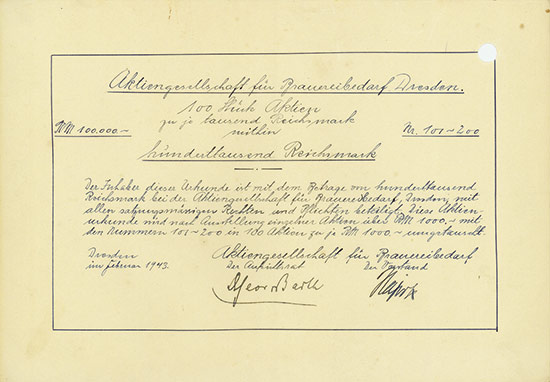 Aktiengesellschaft für Brauereibedarf Dresden.
100 Stück Aktien
zu je tausend Reichsmark
RM 100.000.– mithin Nr. 101–200
hunderttausend Reichsmark
Der Inhaber dieser Urkunde ist mit dem Betrage von hunderttausend
Reichsmark bei der Aktiengesellschaft für Brauereibedarf, Dresden, mit
allen satzungsmässigen Rechten und Pflichten beteiligt. Diese Aktien-
urkunde wird nach Ausstellung einzelner Aktien über RM 1000.– mit
den Nummern 101–200 in 100 Aktien zu je RM 1000.– umgetauscht.
Dresden Aktiengesellschaft für Brauereibedarf
im Februar 1943. Der Aufsichtsrat Der Vorstand